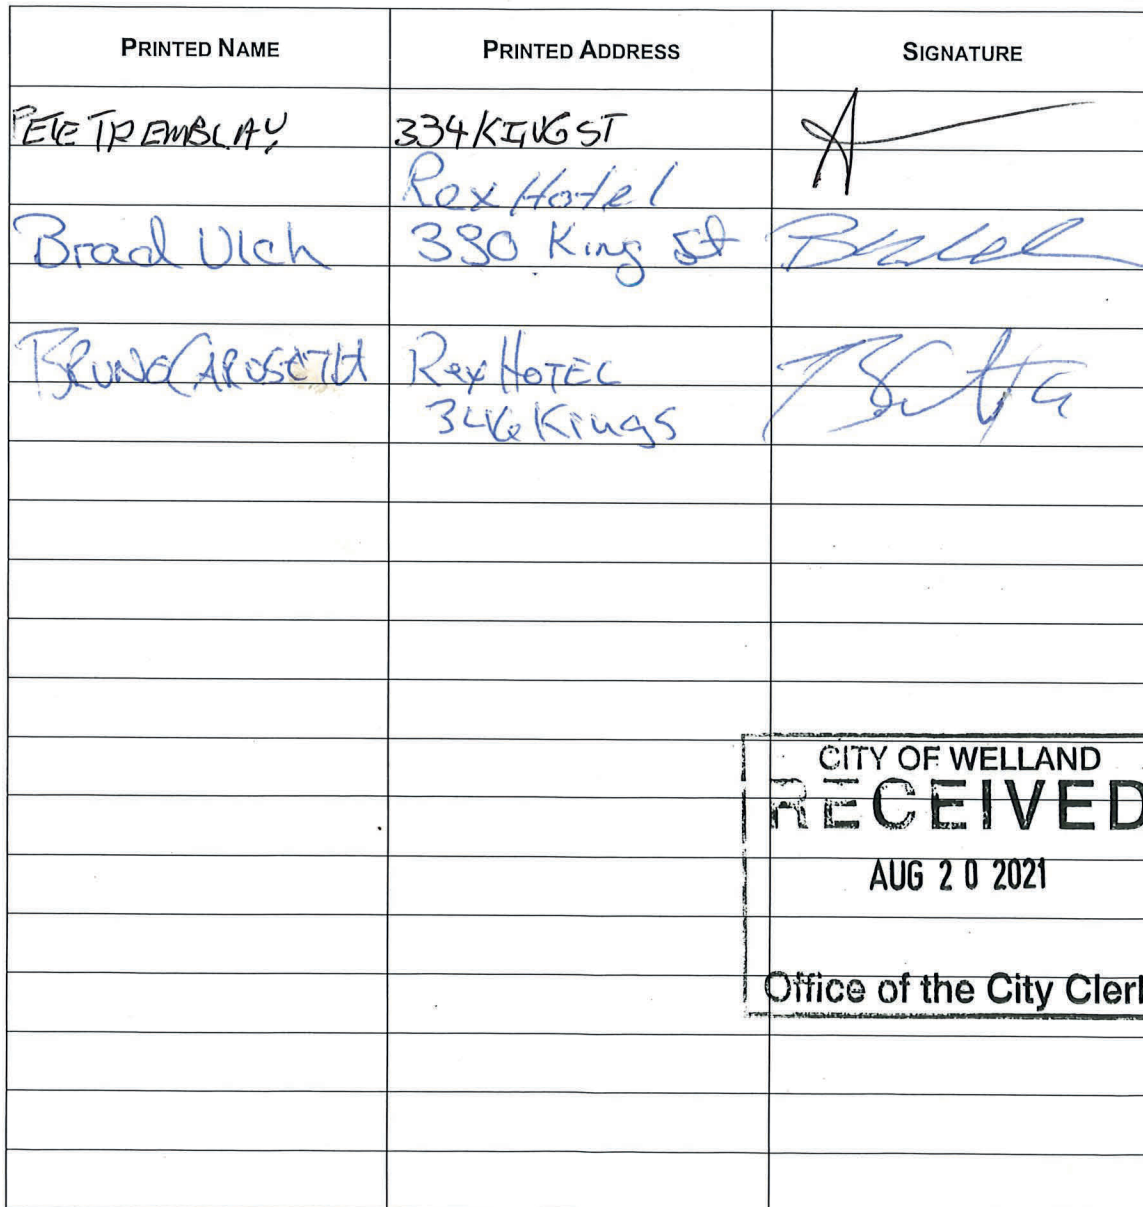 PRINTED NAME PRINTED ADDRESS SIGNATURE
PETE TREMBLAY 334 KING ST
Rex Hotel
Brad Ulch 330 King St
BRUNO Rex HOTEL
346 Kings
CITY OF WELLAND
RECEIVED
AUG 20 2021
Office of the City Clerk